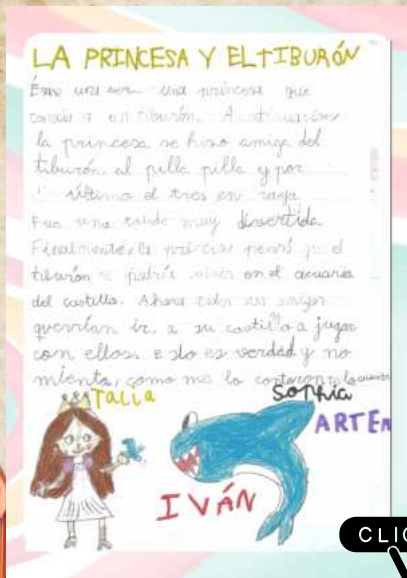 LA PRINCESA Y EL TIBURÓN
Érase una vez una princesa que
conocía a un tiburón. A continuación
la princesa se hizo amiga del
tiburón. al pilla pilla y por
último el tres en raya
Fue una tarde muy divertida
Finalmente la princesa pensó que el
tiburón podría vivir en el acuario
del castillo. Ahora sus amigos
querrían ir, a su castillo a jugar
con ellos. esto es verdad y no
miento, como me lo contaron te lo cuento
TALIA
SOPHIA
ARTEM
IVÁN
CLIC